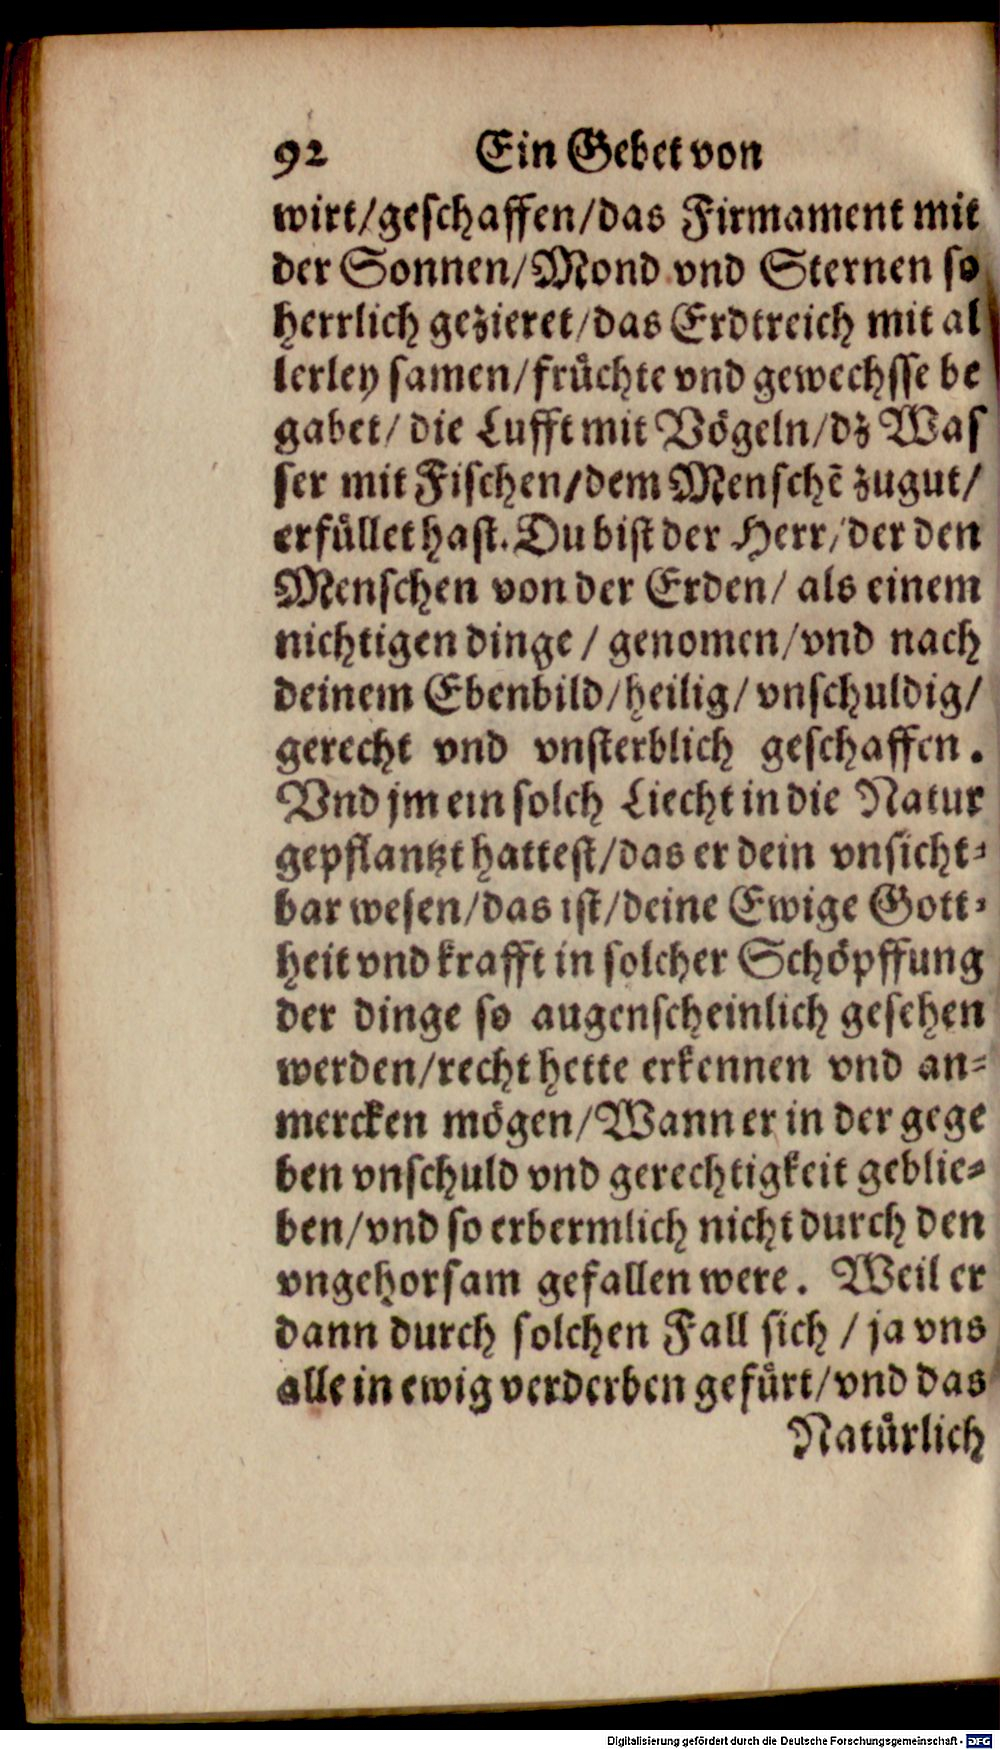 92 Ein Gebet von
wirt/geschaffen/das Firmament mit
der Sonnen/Mond vnd Sternen so
herrlich gezieret/das Erdtreich mit al
lerley samen/früchte vnd gewechsse be
gabet/die Lufft mit Vögeln/dz Was
ser mit Fischen/dem Menschē zugut/
erfüllet hast. Du bist der Herr/der den
Menschen von der Erden/ als einem
nichtigen dinge / genomen/vnd nach
deinem Ebenbild/heilig/vnschuldig/
gerecht vnd vnsterblich geschaffen.
Vnd jm ein solch Liecht in die Natur
gepflantzt hattest/das er dein vnsicht-
bar wesen/das ist/deine Ewige Gott-
heit vnd krafft in solcher Schöpffung
der dinge so augenscheinlich gesehen
werden/recht hette erkennen vnd an-
mercken mögen/Wann er in der gege
ben vnschuld vnd gerechtigkeit geblie-
ben/vnd so erbermlich nicht durch den
vngehorsam gefallen were. Weil er
dann durch solchen Fall sich / ja vns
alle in ewig verderben gefürt/vnd das
Natürlich
Digitalisierung gefördert durch die Deutsche Forschungsgemeinschaft - DFG